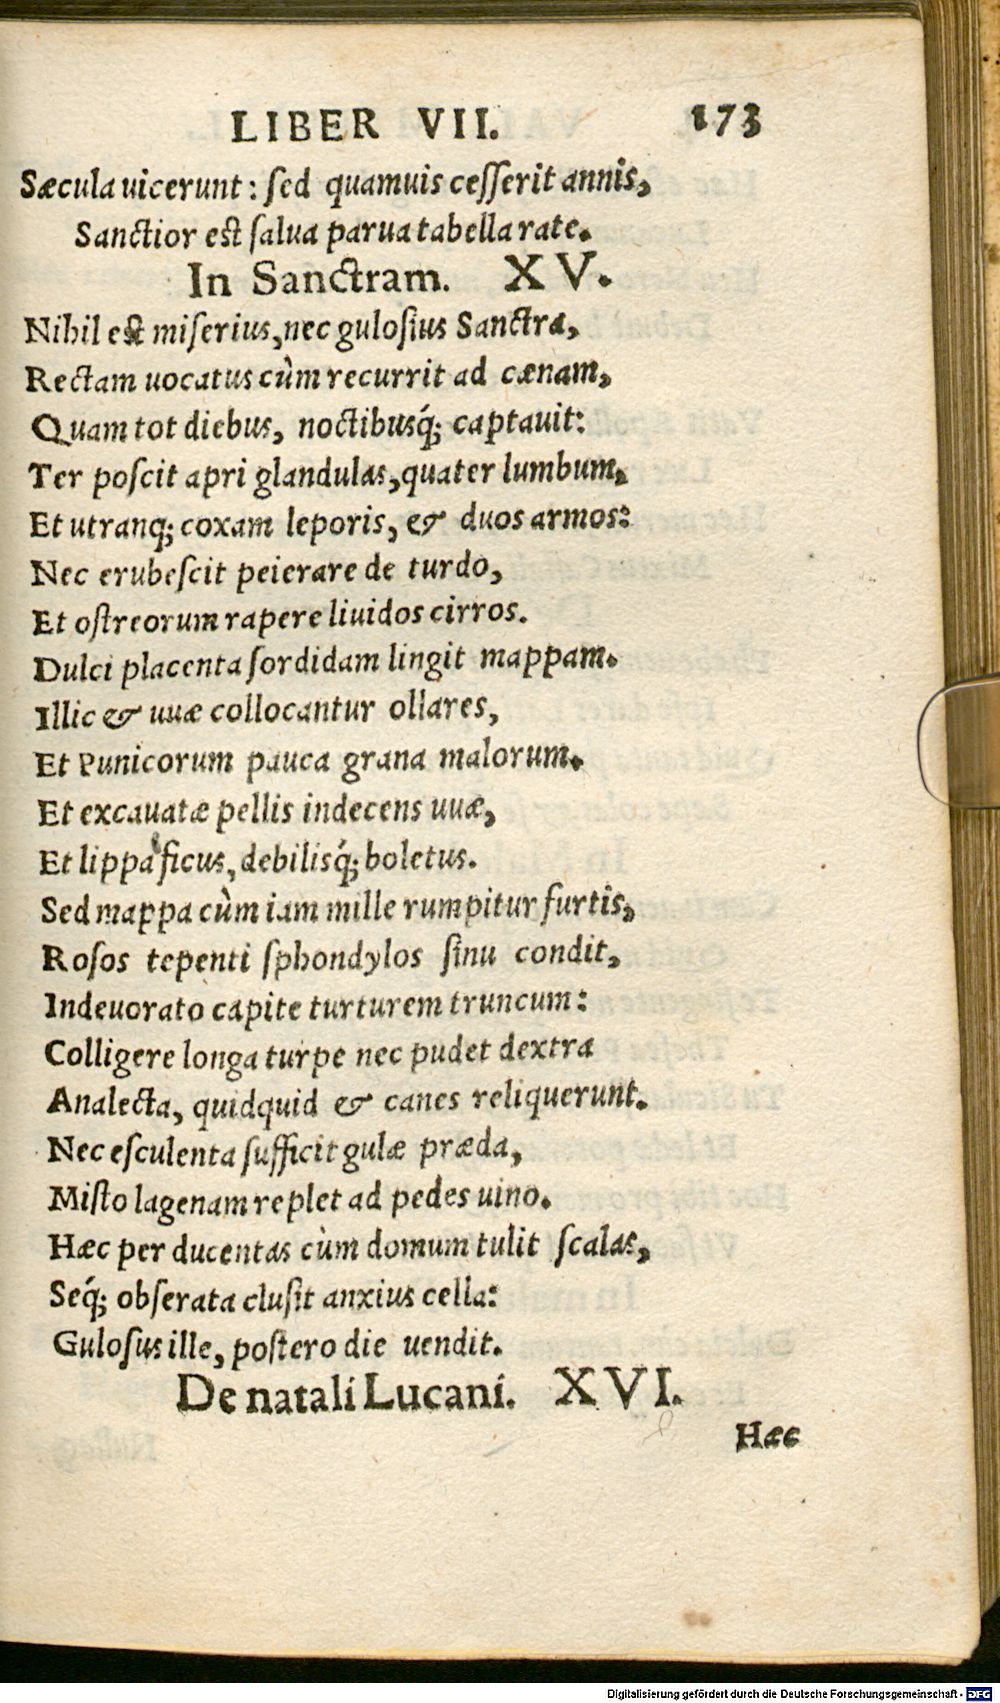 LIBER VII. 173
Sæcula uicerunt: ſed quamuis ceſſerit annis,
Sanctior eſt ſalua parua tabella rate.
In Sanctram. XV.
Nihil eſt miſerius, nec guloſius Sanctra,
Rectam uocatus cùm recurrit ad cænam,
Quam tot diebus, noctibusq́; captauit:
Ter poſcit apri glandulas, quater lumbum,
Et utranq; coxam leporis, & duos armos:
Nec erubeſcit peierare de turdo,
Et oſtreorum rapere liuidos cirros.
Dulci placenta ſordidam lingit mappam.
Illic & uuæ collocantur ollares,
Et Punicorum pauca grana malorum.
Et excauatæ pellis indecens uuæ,
Et lippa ficus, debilisq́; boletus.
Sed mappa cùm iam mille rumpitur furtis,
Roſos tepenti ſphondylos ſinu condit,
Indeuorato capite turturem truncum:
Colligere longa turpe nec pudet dextra
Analecta, quidquid & canes reliquerunt.
Nec eſculenta ſufficit gulæ præda,
Miſto lagenam replet ad pedes uino.
Hæc per ducentas cùm domum tulit ſcalas,
Seq́; obſerata cluſit anxius cella:
Guloſus ille, poſtero die uendit.
De natali Lucani. XVI.
Hæc
Digitalisierung gefördert durch die Deutsche Forschungsgemeinschaft - DFG